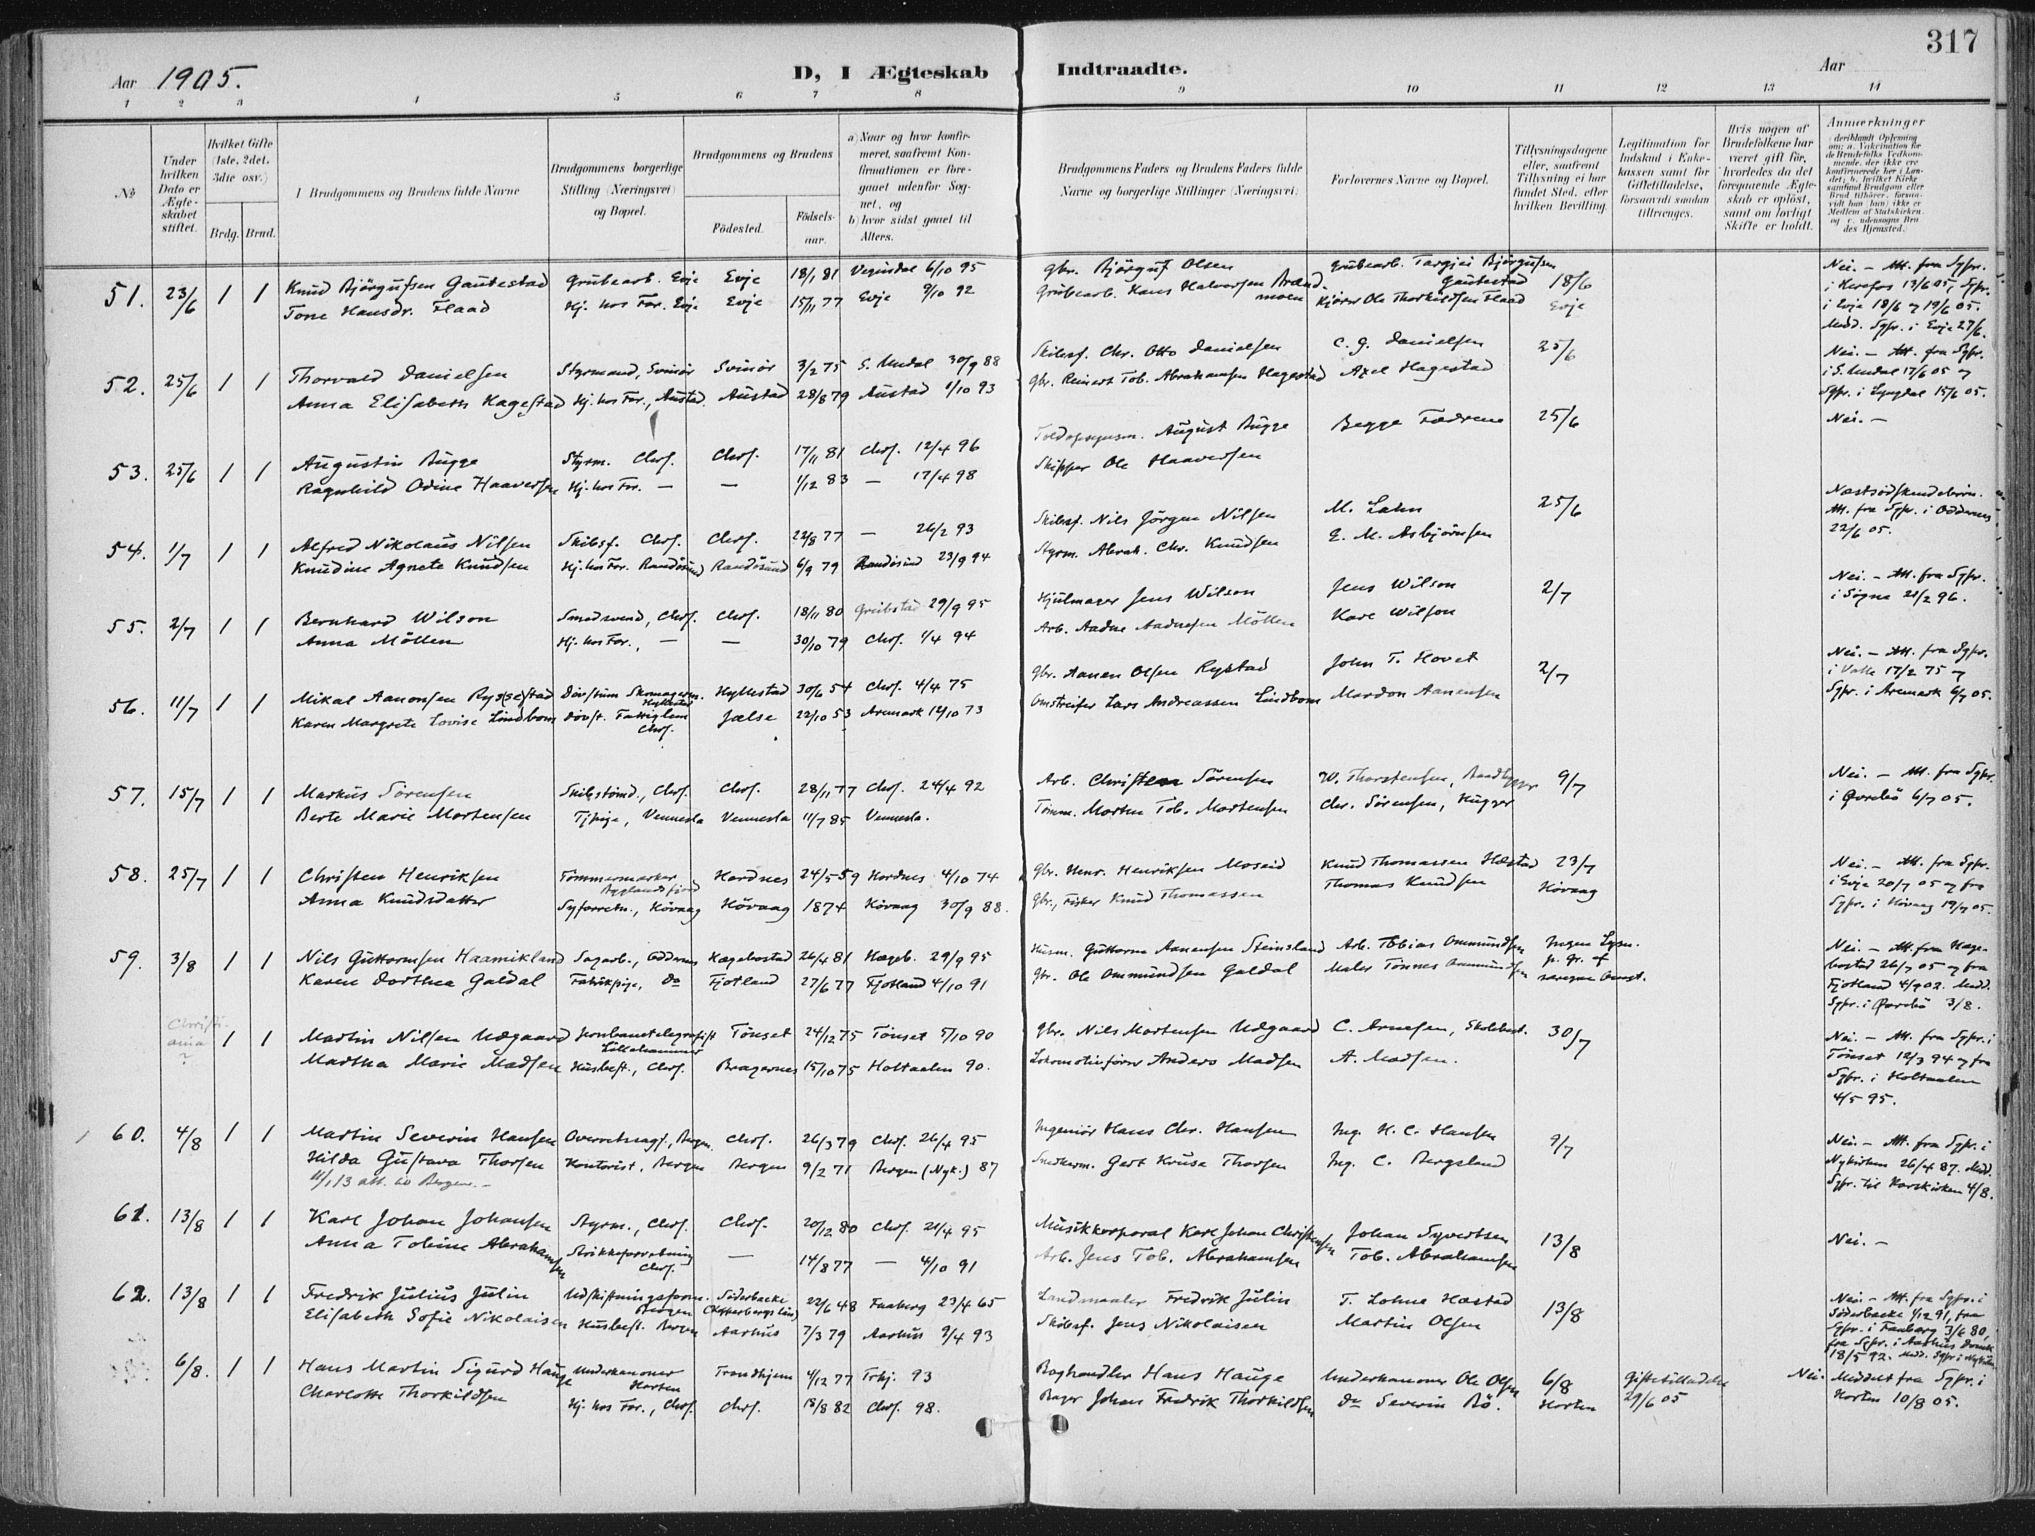 317
Aar 1905.
D, I Ægteskab Indtraadte.
Aar
1 2 3 4 5 6 7 8 9 10 11 12 13 14
No.
Under hvilken Dato er Ægteskabet stiftet.
Hvilket Gifte (1ste, 2det, 3die osv.)
Brdg. Brud.
Brudgommens og Brudens fulde Navne
Brudgommens borgerlige Stilling (Næringsvei) og Bopæl.
Brudgommens og Brudens
Födested.
Födselsaar.
a) Naar og hvor konfirmeret, saafremt Konfirmationen er foregaaet udenfor Sognet, og
b) hvor sidst gaaet til Alters.
Brudgommens Faders og Brudens Faders fulde Navne og borgerlige Stillinger (Næringsvei)
Forlovernes Navne og Bopæl.
Tillysningsdagene eller, saafremt Tillysning ei har fundet Sted, efter hvilken Bevilling.
Legitimation for Indskud i Enkekassen samt for Giftetilladelse, forsaavidt saadan tiltrænges.
Hvis nogen af Brudefolkene har været gift för, hvorledes da det foregaaende Ægteskab er oplöst, samt om lovligt Skifte er holdt.
Anmærkninger
51. 23/6 1 1 Knud Björgufsen Gautestad Grubearb. Evje Evje 18/1 81 Vegusdal 6/10 95 Gbr. Björguf Olsen Grubearb. Targjei Björgufsen Gautestad 18/6 Evje Nei. - Att. fra Sgpr.
Tone Hansdr. Flaad Hj. hos For. Evje Evje 15/11 77 Evje 9/10 92 Grubearb. Hans Halvorsen Kjører Ole Thorkildsen Flaad i Herefos 13/6 05, Sgpr.
i Evje 18/6 og 19/6 05.
Medd. Sgpr. i Evje 27/6.
52. 25/6 1 1 Thorvald Danielsen Styrmand, Svinör Svinör 3/2 75 S. Undal 30/9 88 Skibsf. Chr. Otto Danielsen C. G. Danielsen 25/6 Nei. - Att. fra Sgpr.
Anna Elisabeth Hagestad Hj. hos For., Austad. Austad 28/8 79 Austad 1/10 93 Gbr. Reinert Tob. Abrahamsen Hagestad Axel Hagestad i S. Undal 17/6 05 og
Sgpr. i Lyngdal 15/6 05.
53. 25/6 1 1 Augustin Bugge Styrm. Chrs. Chrs. 17/11 81 Chrs. 12/4 96 Toldopsynsm. August Bugge Begge Fædrene 25/6 Nei. -
Ragnhild Odine Haaversen Hj. hos For. - - 1/12 83 - 17/4 98 Skipper Ole Haaversen
54. 1/7 1 1 Alfred Nikolaus Nilsen Skibsf. Chrs. Chrs. 22/8 77 - 26/2 93 Skibsf. Nils Jörgen Nilsen M. Lahn 25/6 Næstsödskendebörn.
Knudine Agnete Knudsen Hj. hos For. Randösund Randösund 6/9 79 Randösund 23/9 94 Styrm. Abrah. Chr. Knudsen E. M. Asbjörnsen Att. fra Sgpr. i Oddernes
22/6 05.
55. 2/7 1 1 Bernhard Wilson Smedsvend, Chrs. Chrs. 18/11 80 Greibstad 29/9 95 Hjulmager Jens Wilson Jens Wilson 2/7 Nei. - Att. fra Sgpr.
Anna Möllen Hj. hos For., - - 30/10 79 Chrs. 1/4 94 Arb. Aadne Aadnesen Möllen Kare Wilson i Sögne 21/2 96.
56. 11/7 1 1 Mikal Aanonsen Rysstad Dövstum Skomagersv. Hyllestad Hyllestad 30/6 54 Chrs. 4/4 75 Gbr. Aanen Olsen Rystad John T. Hovet 2/7 Nei. - Att. fra Sgpr.
Karen Margrete Lovise Lindbom Dövst. Fattiglem Chrs. Jælse 22/10 53 Aremark 12/10 73 Omstreifer Lars Andreassen Lindbom Mardon Aanensen i Valle 17/2 75 og
Sgpr. i Aremark 6/7 05.
57. 15/7 1 1 Markus Sörensen Skibstömd., Chrs. Chrs. 28/11 77 Chrs. 24/4 92 Arb. Christen Sörensen W. Thorstensen, Baadbygger 9/7 Nei. - Att. fra Sgpr.
Berte Marie Mortensen Tjpige, Vennesla Vennesla 11/7 85 Vennesla. Tömm. Morten Tob. Mortensen Chr. Sörensen, Hugger i Øvrebö 6/7 05.
58. 25/7 1 1 Christen Henriksen Tömmermærker Byglandsfjord Hordnes 24/5 59 Hordnes 4/10 74 Gbr. Henr. Henriksen Moseid Knud Thomassen Hæstad 23/7 Hövaag Nei. - Att. fra Sgpr.
Anna Knudsdatter Syforretn., Hövaag Hövaag 1874 Hövaag 30/9 88. Gbr., Fisker Knud Thomassen Thomas Knudsen i Evje 20/7 05 og fra
Sgpr. i Hövaag 19/7 05.
59. 3/8 1 1 Nils Guttormsen Haamikland Sagarb., Oddernes Hægebostad 26/4 81 Hægeb. 29/9 95 Husm. Guttorm Aanensen Steinsland Arb. Tobias Ommundsen Ingen Lysn. Nei. - Att. fra Hægebostad 26/7 05 og fra
Karen Dorthea Galdal Fabrikpige, Do Fjotland 27/6 77 Fjotland 4/10 91 Gbr. Ole Ommundsen Galdal Maler Tönnes Ommundsen p. Gr. af Fjotland 4/9 02. Medd.
Sgpr. i Øvrebö 3/8.
Christiania ? 1 1 Martin Nilsen Udgaard Jernbanetelegrafist Lillehammer Tönset 24/12 75 Tönset 5/10 90 Gbr. Nils Mortensen Udgaard C. Arnesen, Skolebest. 30/7 Nei. - Att. fra Sgpr. i
Martha Marie Madsen Husbest., Chrs. Bragernes 15/10 75 Holtaalen 90. Lokomotivförer Anders Madsen A. Madsen. Tönset 12/3 94 og fra
Sgpr. i Holtaalen
4/5 95.
60. 4/8 1 1 Martin Severin Hansen Overretssagf., Bergen. Chrs. 26/3 79 Chrs. 26/4 95 Ingeniör Hans Chr. Hansen Ing. H. C. Hansen 9/7 Nei. - Att. fra Sgpr. i
Hilda Gustava Thorsen Kontorist, Bergen Bergen 9/2 71 Bergen (Nyk.) 87 Snedkerm. Gert Kruse Thorsen Ing. C. Bergsland Nykirken 26/4 87. Medd.
11/1 13 att. to Bergen. - Sgpr. til Korskirken 4/8.
61. 13/8 1 1 Karl Johan Johansen Styrm., Chrs. Chrs. 20/12 80 Chrs. 21/4 95 Musikkorporal Karl Johan Christensen Johan Syvertsen 13/8 Nei. -
Anna Tobine Abrahamsen Strikkeforretning Chrs. - 14/8 77 - 4/10 91 Arb. Jens Tob. Abrahamsen Tob. Abrahamsen
62. 13/8 1 1 Fredrik Julius Julin Udskiftningsform. Bergen Söderbacke 22/6 48 Faaberg 23/4 65 Landmaaler Fredrik Julin T. Lohne Hæstad 13/8 Nei. - Att. fra Sgpr. i
Elisabeth Sofie Nikolaisen Husbest. Bergen Aarhus 7/3 79 Aarhus 9/4 93 Skibsf. Jens Nikolaisen Martin Olsen Söderbacke 1/12 91, fra
Sgpr. i Faaberg 3/6 80,
fra Sgpr. i Aarhus Domk.
18/5 92.
6/8. 1 1 Hans Martin Sigurd Hauge Underkanoner Horten Trondhjem 4/12 77 Trhj. 93 Boghandler Hans Hauge Underkanoner Ole Olsen 6/8 Horten Giftetilladelse 29/6 05 Nei. Meddelt fra Sgpr. i
Charlotte Thorkildsen Hj. hos For., Chrs. Chrs. 18/8 82 Chrs. 98. Bager Johan Fredrik Thorkildsen Do Severin Bö. Horten 10/8 05.